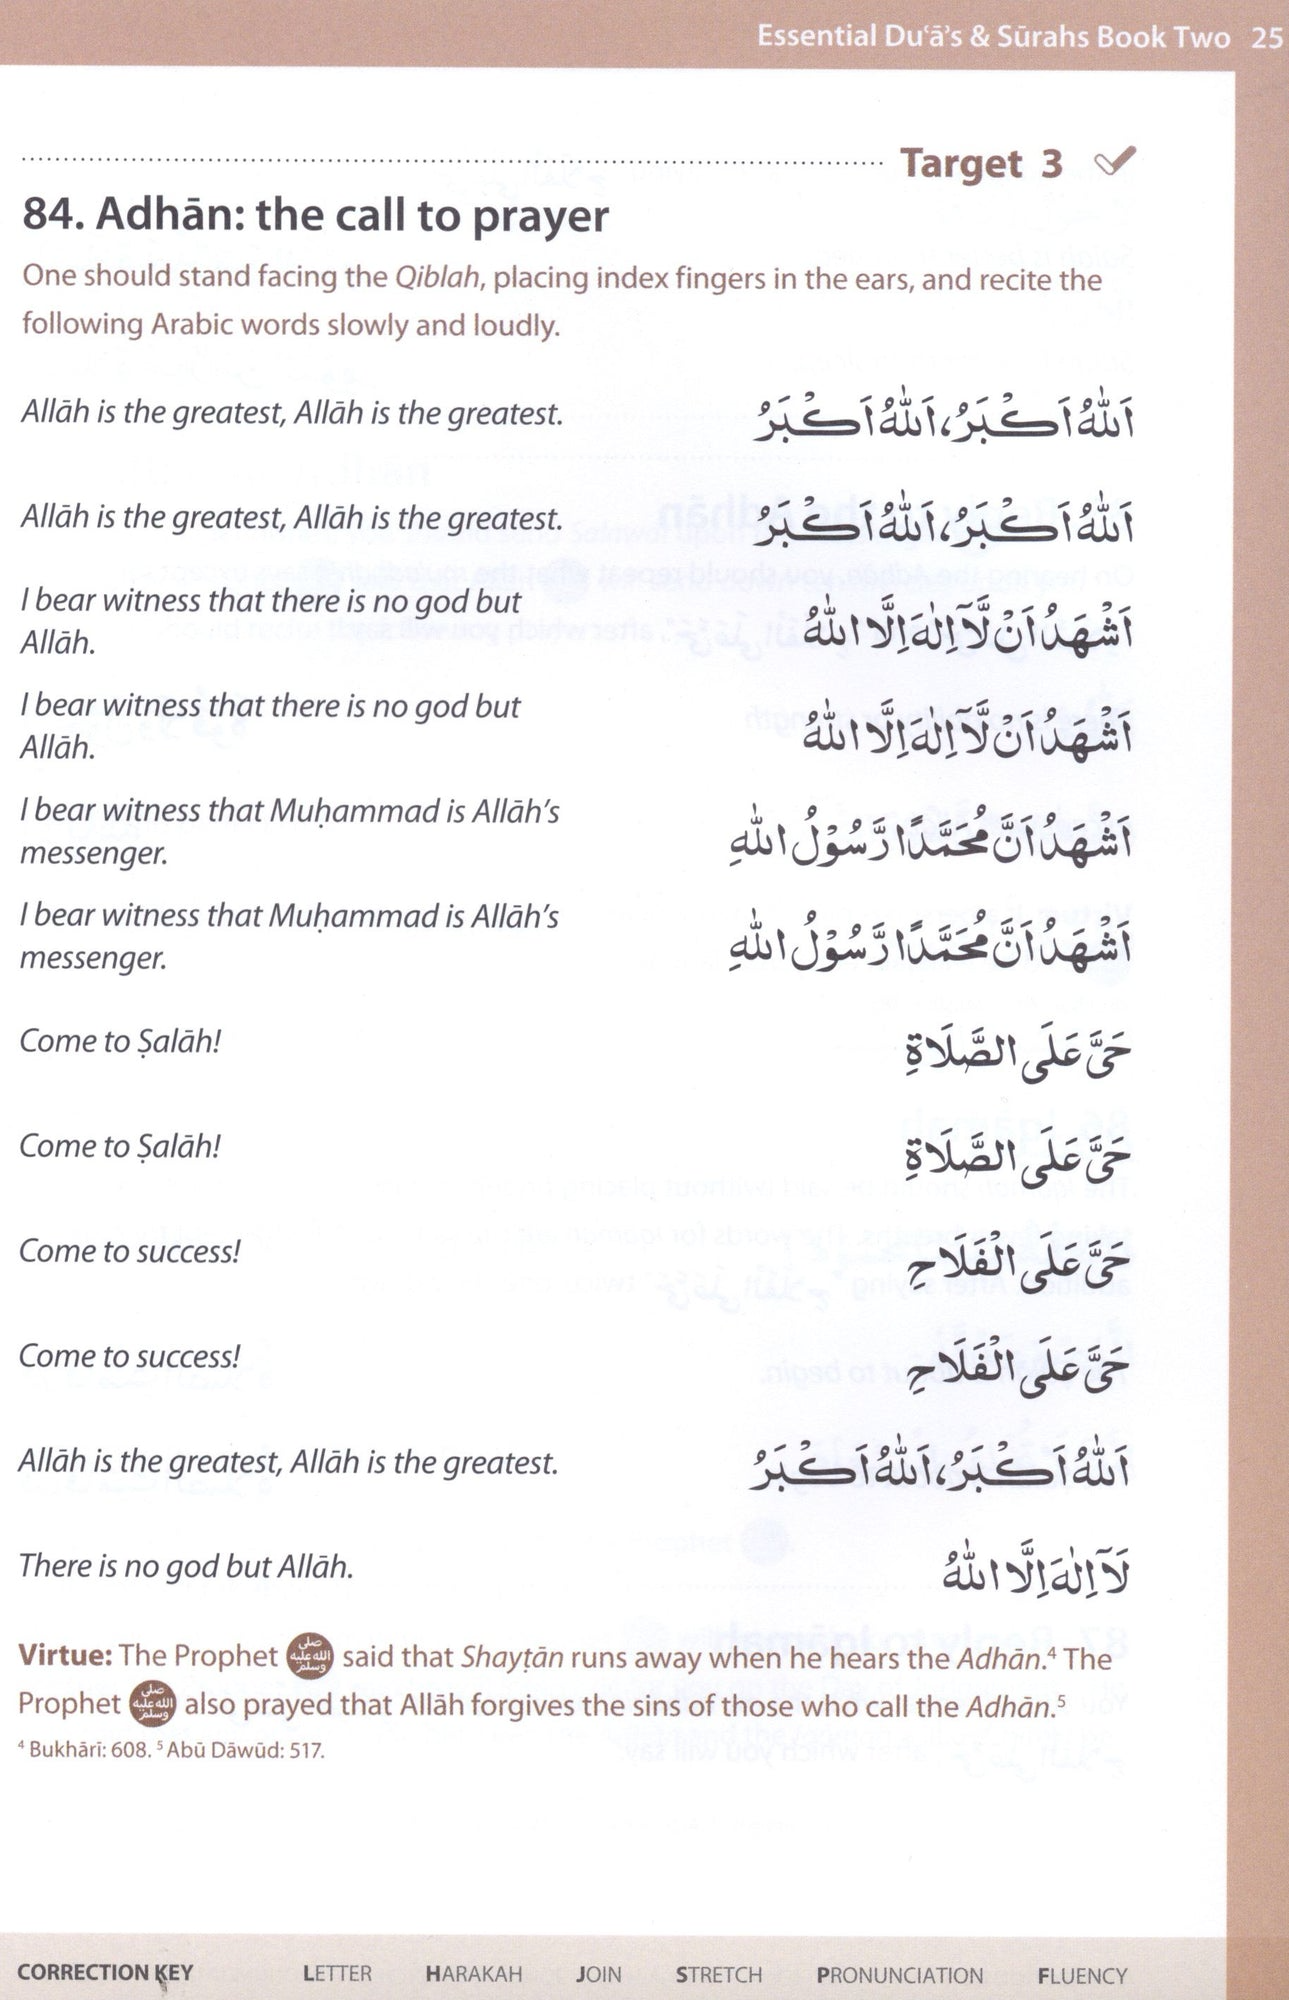 Essential Duʿā's & Sūrahs Book Two 25
Target 3
84. Adhān: the call to prayer
One should stand facing the Qiblah, placing index fingers in the ears, and recite the
following Arabic words slowly and loudly.
Allāh is the greatest, Allāh is the greatest. اَللّٰهُ اَكْبَرُ، اَللّٰهُ اَكْبَرُ
Allāh is the greatest, Allāh is the greatest. اَللّٰهُ اَكْبَرُ، اَللّٰهُ اَكْبَرُ
I bear witness that there is no god but
Allāh. اَشْهَدُ اَنْ لَّآ اِلٰهَ اِلَّا اللّٰهُ
I bear witness that there is no god but
Allāh. اَشْهَدُ اَنْ لَّآ اِلٰهَ اِلَّا اللّٰهُ
I bear witness that Muḥammad is Allāh's
messenger. اَشْهَدُ اَنَّ مُحَمَّدًا رَّسُوْلُ اللّٰهِ
I bear witness that Muḥammad is Allāh's
messenger. اَشْهَدُ اَنَّ مُحَمَّدًا رَّسُوْلُ اللّٰهِ
Come to Ṣalāh! حَیَّ عَلَی الصَّلَاةِ
Come to Ṣalāh! حَیَّ عَلَی الصَّلَاةِ
Come to success! حَیَّ عَلَی الْفَلَاحِ
Come to success! حَیَّ عَلَی الْفَلَاحِ
Allāh is the greatest, Allāh is the greatest. اَللّٰهُ اَكْبَرُ، اَللّٰهُ اَكْبَرُ
There is no god but Allāh. لَآ اِلٰهَ اِلَّا اللّٰهُ
Virtue: The Prophet ﷺ said that Shayṭān runs away when he hears the Adhān.⁴ The
Prophet ﷺ also prayed that Allāh forgives the sins of those who call the Adhān.⁵
⁴ Bukhārī: 608. ⁵ Abū Dāwūd: 517.
CORRECTION KEY LETTER HARAKAH JOIN STRETCH PRONUNCIATION FLUENCY